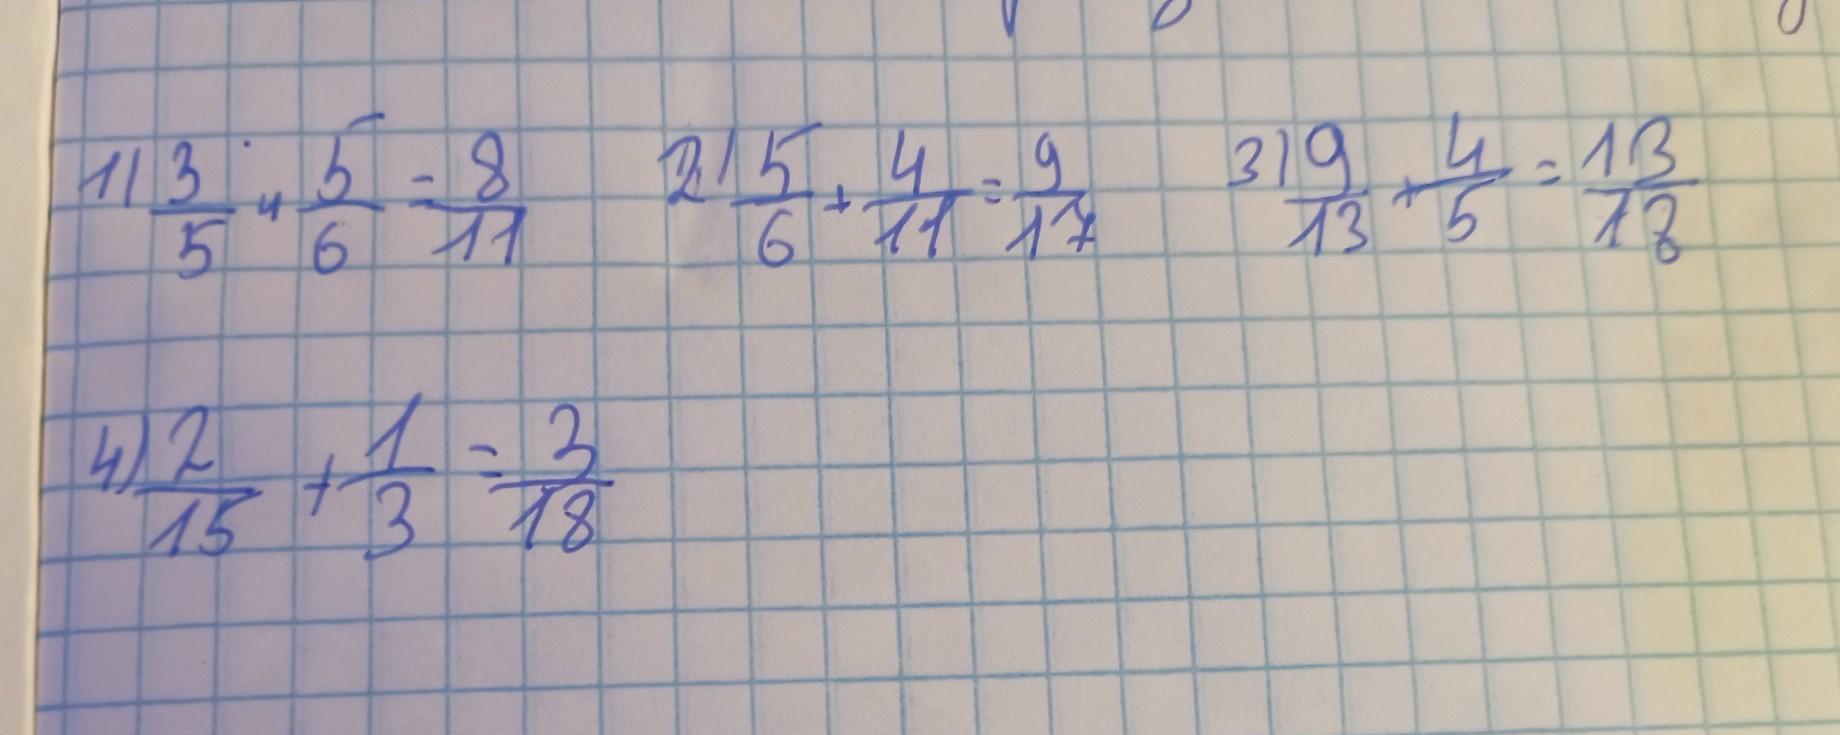 1) 3/5 + 5/6 = 8/11 2) 5/6 + 4/11 = 9/17 3) 9/13 + 4/5 = 13/18
4) 2/15 + 1/3 = 3/18